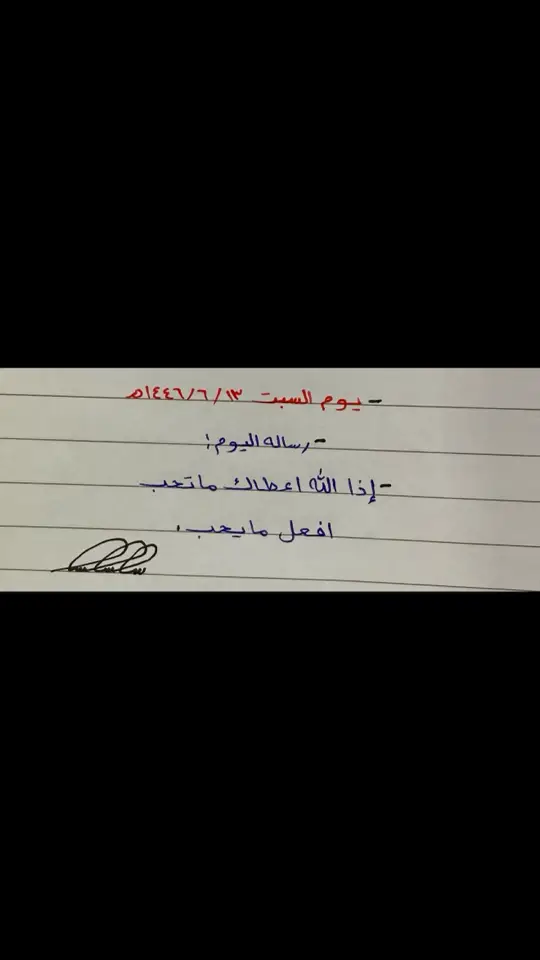 - يوم السبت ١٤٤٦/٦/١٣هـ
- رساله اليوم:
- إذا الله اعطاك ماتحب
افعل مايحب.